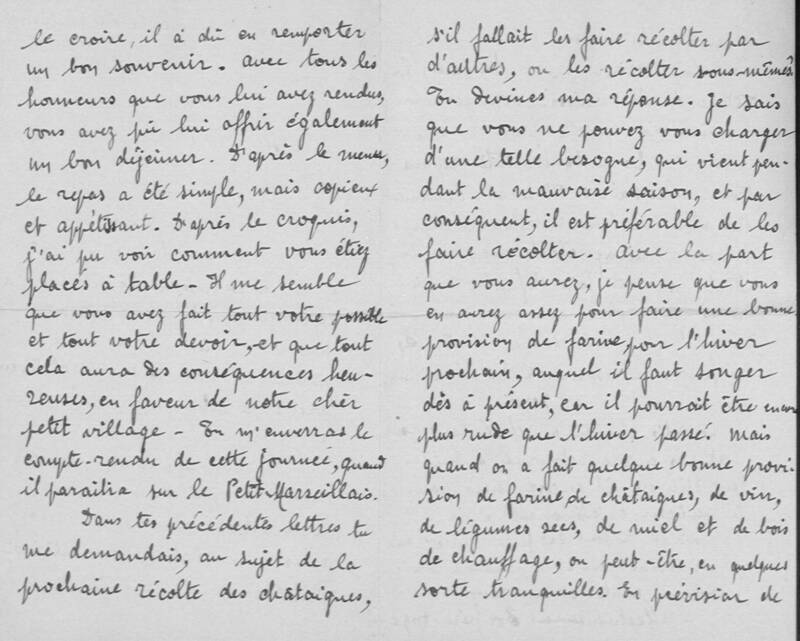 le croire, il a dû en remporter
un bon souvenir. Avec tous les
honneurs que vous lui avez rendus,
vous avez pû lui offrir également
un bon déjeuner. D'après le menu,
le repas a été simple, mais copieux
et appétissant. D'après le croquis,
j'ai pu voir comment vous étiez
placés à table - Il me semble
que vous avez fait tout votre possible
et tout votre devoir, et que tout
cela aura des conséquences heu-
reuses, en faveur de notre cher
petit village - Tu m'enverras le
compte-rendu de cette journée, quand
il paraîtra sur le Petit-Marseillais.
Dans tes précédentes lettres tu
me demandais, au sujet de la
prochaine récolte des châtaignes,
s'il fallait les faire récolter par
d'autres, ou les récolter vous-mêmes?
Tu devines ma réponse. Je sais
que vous ne pouvez vous charger
d'une telle besogne, qui vient pen-
dant la mauvaise saison, et par
conséquent, il est préférable de les
faire récolter. Avec la part
que vous aurez, je pense que vous
en aurez assez pour faire une bonne
provision de farine, pour l'hiver
prochain, auquel il faut songer
dès à présent, car il pourrait être encore
plus rude que l'hiver passé. Mais
quand on a fait quelque bonne provi-
sion de farine de châtaignes, de vin,
de légumes secs, de miel et de bois
de chauffage, on peut-être, en quelques
sorte tranquilles. En prévision de